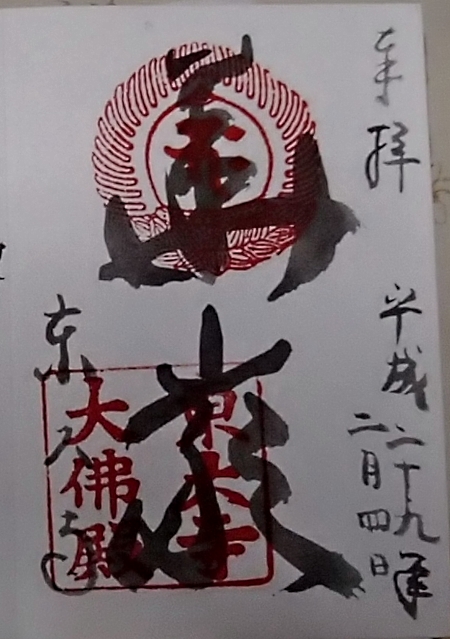 奉拝
平成二十九年
二月四日
華嚴
東大寺
大佛殿
東大寺